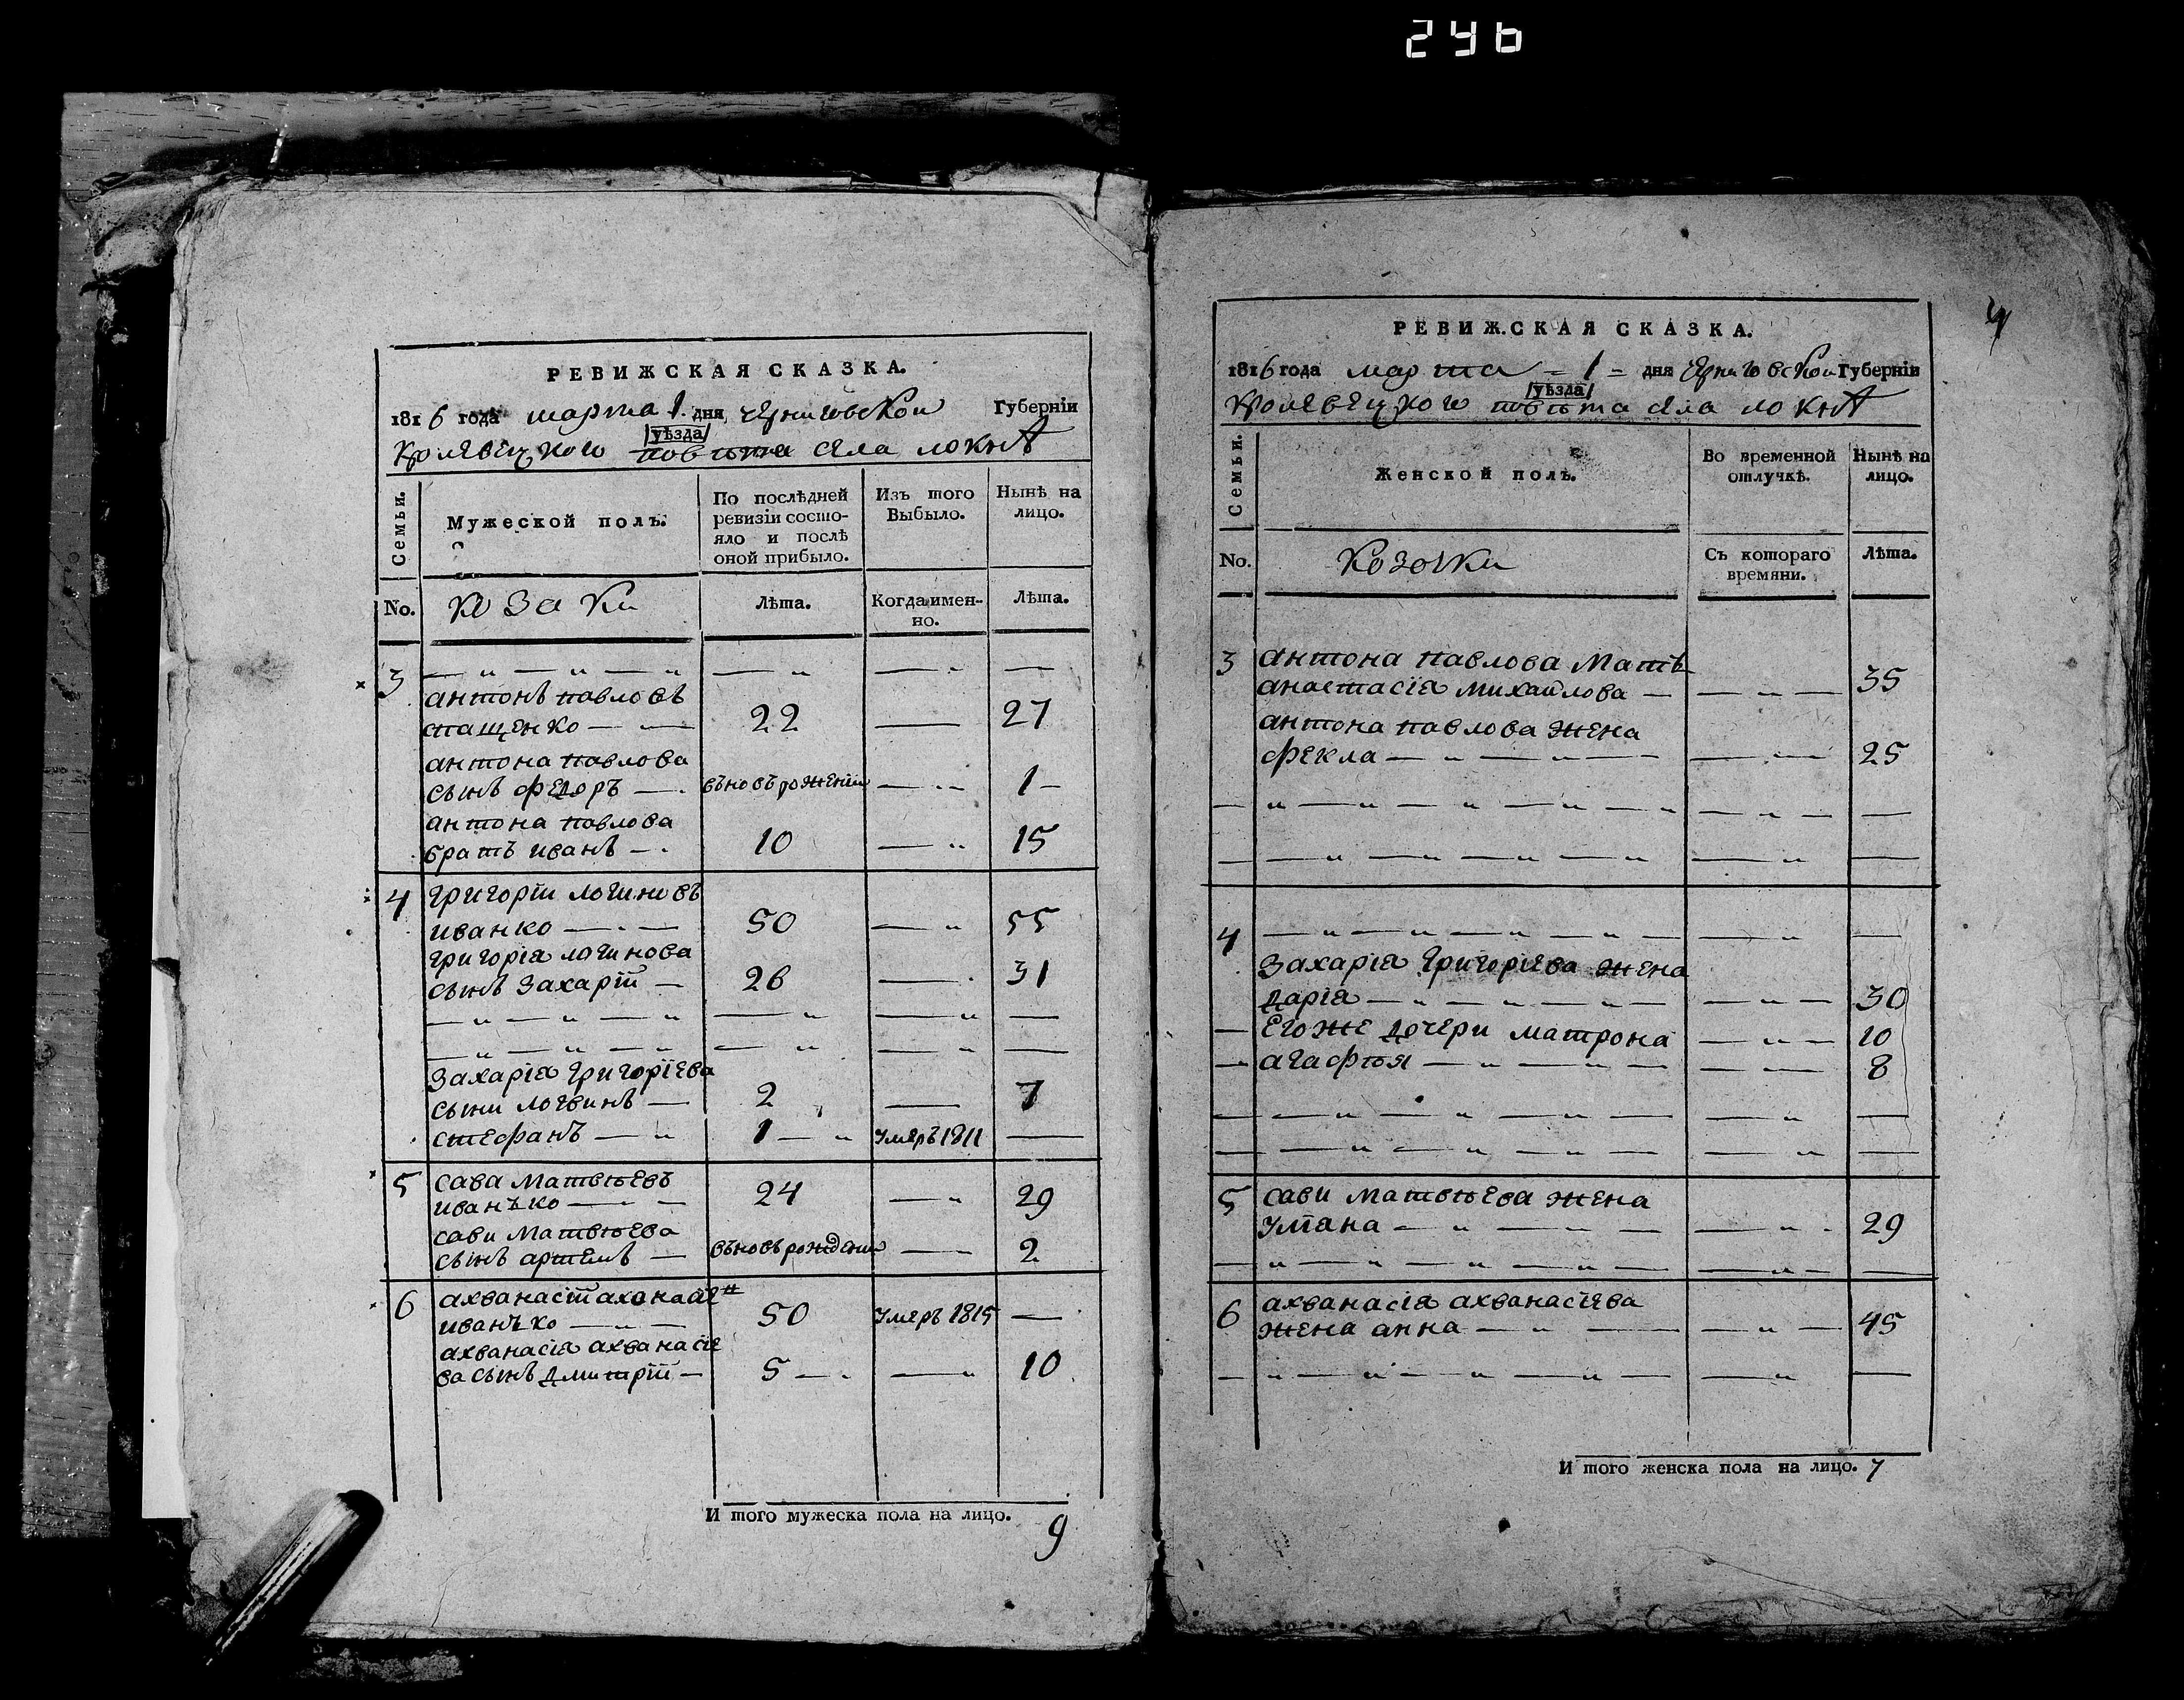 246
РЕВИЖСКАЯ СКАЗКА.
1816 года марта 1 дня черниговской Губернїи
/уѣзда/
Кролевецкого повѣта села локнѣ
Семьи.
Мужеской полъ.
По послѣдней
ревизїи состо-
яло и послѣ
оной прибыло.
Изъ того
Выбыло.
Нынѣ на
лицо.
No.
козаки
Лѣта.
Когда имен-
но.
Лѣта.
3
антонъ павловъ
стащенко 22 27
антона павлова
сынъ федоръ вьновьрожении 1
антона павлова
братъ иванъ 10 15
4 григорїй логиновъ
иванко 50 55
григорїа логинова
сынъ захарїй 26 31
захарїа григорїева
сыни логвинъ 2 7
стефанъ 1 умеръ 1811
5 сава матвѣевъ
иванько 24 29
сави матвѣева
сынъ артемъ вьновьрождении 2
6 ахванасїй
иванько 50 умеръ 1815
ахванасїа ахванасїе
ва сынъ дмитрїй 5 10
И того мужеска пола на лицо. 9
4
РЕВИЖСКАЯ СКАЗКА.
1816 года марта 1 дня черниговской Губернїи
/уѣзда/
Кролевецкого повѣта села локнѣ
Семьи.
Женской полъ.
Во временной
отлучкѣ.
Нынѣ на
лицо.
No.
козачки
Съ котораго
времяни.
Лѣта.
3 антона павлова мать
анастасїа михайлова 35
антона павлова жена
фекла 25
4
захарїа григорїева жена
дарїа 30
его же дочери матрона 10
агафѣя 8
5 сави матвѣева жена
улїана 29
6 ахванасїа ахванасїева
жена анна 45
И того женска пола на лицо. 7